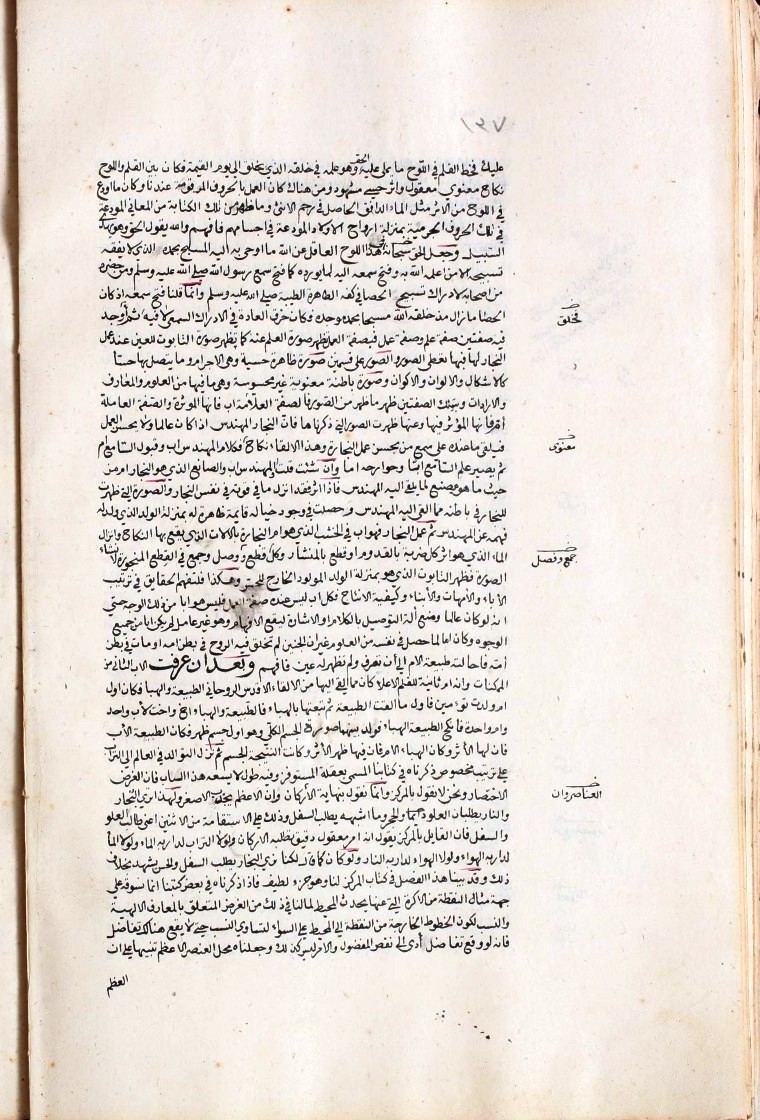 ١٣٧
عليك فخط القلم في اللوح ما يملى عليه الحق وهو علمه في خلقه الذي يخلق الى يوم القيمة فكان بين القلم واللوح
نكاح معنوى معقول واثر حسى مشهود ومن هناك كان العمل بالحروف المرقومة عندنا وكان ما اودع
في اللوح من الاثر مثل الماء الدافق الحاصل في رحم الانثى وما ظهر من تلك الكتابة من المعاني المودعة
في تلك الحروف الجرمية بمنزلة ارواح الاولاد المودعة في اجسامهم فافهم والله يقول الحق وهو يهدى
السبيل وجعل الحق سبحانه في هذا اللوح العاقل عن الله ما اوحى به اليه المسبح بحمده الذي لا يفقه
تسبيحه الا من اعلمه الله به وفتح سمعه اليه لما يورده كما فتح سمع رسول الله صلى الله عليه وسلم ومن حضره
من اصحابه لادراك تسبيح الحصا في كفه الطاهرة الطيبة صلى الله عليه وسلم وانما قلنا فتح سمعه اذ كان
الحصا ما زال من خلقه الله مسبحا بحمد موجده وكان خرق العادة في الادراك السمعى لا فيه ثم اوجد
فيه صفتين صفة علم وصفة عمل فبصفة العمل تظهر صورة العلم عنه كما تظهر صورة التابوت للعين عند عمل
النجار لها فبها يعطى الصور والصور على قسمين صورة ظاهرة حسية وهي الاجرام وما يتصل بها حسا
كالاشكال والالوان والاكوان وصورة باطنة معنوية غير محسوسة وهي ما فيها من العلوم والمعارف
والارادات وبتينك الصفتين ظهر ما ظهر من الصور فالصفة العلامة اب فانها المؤثرة والصفة العاملة
ام فانها المؤثر فيها وعنها ظهرت الصور التي ذكرناها فان النجار المهندس اذا كان عالما ولا يحسن العمل
فيلقى ما عنده على سمع من يحسن عمل النجارة وهذا الالقاء نكاح فكلام المهندس اب وقبول السامع ام
ثم يصير علم السامع ابا وجوارحه اما وان شئت قلت فالمهندس اب والصانع الذي هو النجار ام من
حيث ما هو مصغ لما يلقى اليه المهندس فاذا اثر فقد انزل ما في قوته في نفس النجار والصورة التي ظهرت
للنجار في باطنه مما القى اليه المهندس وحصلت في وجود خياله قايمة ظاهرة له بمنزلة الولد الذي ولد له
فهمه عن المهندس ثم عمل النجار فهو اب في الخشب الذي هو ام النجارة بالآلات التي يقع بها النكاح وانزال
الماء الذي هو اثر كل ضربة بالقدوم او قطع بالمنشار وكل قطع ووصل وجمع في القطع المنجورة لانشاء
الصورة فظهر التابوت الذي هو بمنزلة الولد المولود الخارج للحس وهكذا فلتفهم الحقايق في ترتيب
الآباء والامهات والابناء وكيفية الانتاج فكل اب ليس عنده صفة العمل فليس هو ابا من ذلك الوجه حتى
انه لو كان عالما ومنع آلة التوصيل بالكلام او الاشارة ليقع الافهام وهو غير عامل لم يكن ابا من جميع
الوجوه وكان اما لما حصل في نفسه من العلوم غير ان الجنين لم تخلق فيه الروح في بطن امه او مات في بطن
امه فاحالته طبيعة الام الى ان تصرف ولم تظهر له عين فافهم وبعد ان عرفت الاب الثاني من
الممكنات وانه ام ثانية للقلم الاعلا كان مما القى اليها من الالقاء الاقدس الروحاني الطبيعة والهبا فكان اول
ام ولدت توءمين فاول ما القت الطبيعة ثم تبعتها بالهباء فالطبيعة والهباء اخ واخت لاب واحد
وام واحدة فانكح الطبيعة الهباء فولد بينهما صورة الجسم الكلي وهو اول جسم ظهر فكان الطبيعة الاب
فان لها الاثر وكان الهباء الام فان فيها ظهر الاثر وكانت النتيجة الجسم ثم نزل التوالد في العالم الى التراب
على ترتيب مخصوص ذكرناه في كتابنا المسمى بعقلة المستوفز وفيه طول لا يسعه هذا الباب فان الغرض
الاختصار ونحن لا نقول بالمركز وانما نقول بنهاية الاركان وان الاعظم يجذب الاصغر ولهذا نرى البخار
والنار يطلبان العلو والحجر وما اشبهه يطلب السفل وذلك على الاستقامة من الاثنين اعنى طالب العلو
والسفل فان القايل بالمركز يقول انه امر معقول دقيق تطلبه الاركان ولولا التراب لدار به الماء ولولا الماء
لدار به الهواء ولولا الهواء لدار به النار ولو كان كما قال لكنا نرى البخار يطلب السفل والحس يشهد بخلاف
ذلك وقد بينا هذا الفصل في كتاب المركز لنا وهو جزء لطيف فاذا ذكرناه في بعض كتبنا انما نسوقه على
جهة مثال النقطة من الاكرة التي عنها يحدث المحيط لما لنا في ذلك من الغرض المتعلق بالمعارف الالهية
والنسب لكون الخطوط الخارجة من النقطة الى المحيط على السواء لتساوي النسب حتى لا يقع هناك تفاضل
فانه لو وقع تفاضل أدى الى نقص المفضول والامر ليس كذلك وجعلناه محل العنصر الاعظم تنبيها على ان
العظم
فخلق
معنوى
جمع وفصل
العناصر وان